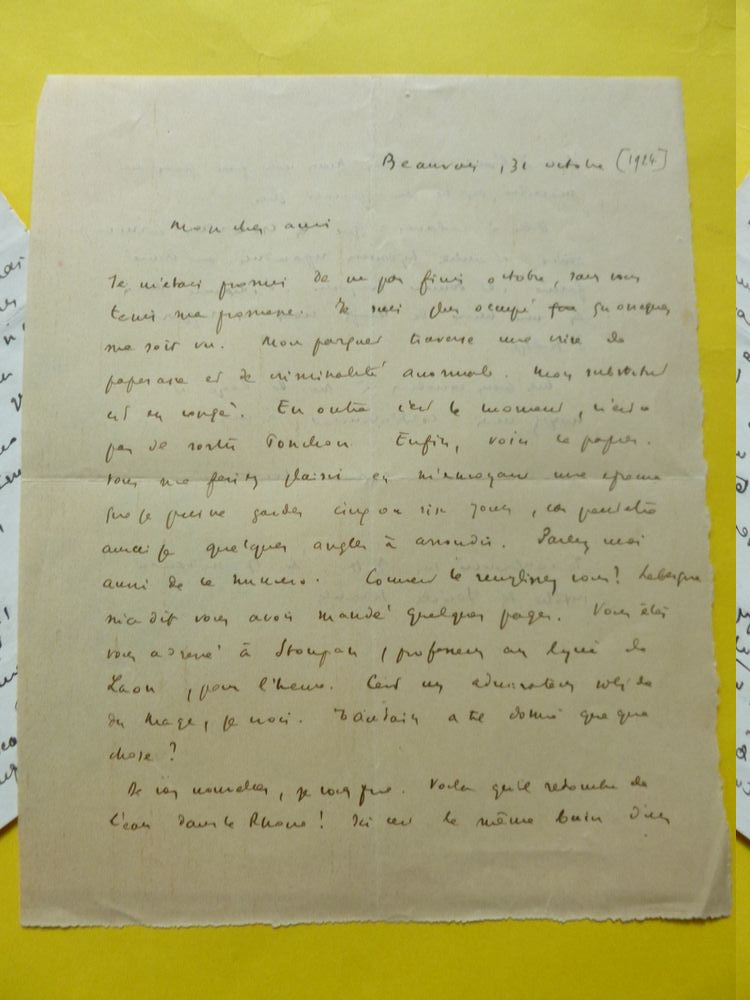 Beauvais, 31 octobre [1924]
Mon cher ami
Je m'étais promis de ne pas finir octobre, sans vous
tenir ma promesse. Je suis plus occupé que quiconque
me soit vu. Mon parquet traverse une crise de
paperasse et de criminalité anormale. Mon substitut
est en congé. En outre c'est le moment, n'est-ce
pas de sortir Ponchon. Enfin, voici ce papier.
Vous me feriez plaisir en m'envoyant une épreuve
que je puisse garder cinq ou six jours, car peut-être
aurai-je quelques angles à arrondir. Parlez moi
aussi de ce numéro. Comment le remplissez vous? Lebesgue
m'a dit vous avoir mandé quelques pages. Vous êtes
vous adressé à , professeur au lycée de
Laon, pour l'heure. C'est un admirateur solide
du Mage, je crois. a-t-il donné quelque
chose?
De vos nouvelles, je vous prie. Voilà qu'il retombe de
l'eau dans le Rhône! Ici c'est le même bain d'eau